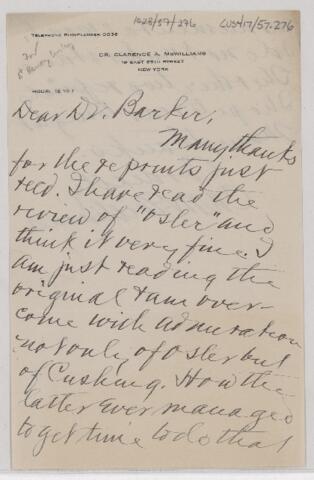 1028/57/276
CUS417/57.276
TELEPHONE RHINELANDER 0036
for
Dr Harvey Cushing
DR. CLARENCE A. McWILLIAMS
19 EAST 65TH STREET
NEW YORK
HOURS 12 TO 1
Dear Dr. Barker,
Many thanks
for the reprints just
recd. I have read the
review of "Osler" and
think it very fine. I
am just reading the
original & am over-
come with admiration
not only of Osler but
of Cushing. How the
latter ever managed
to get time to do that